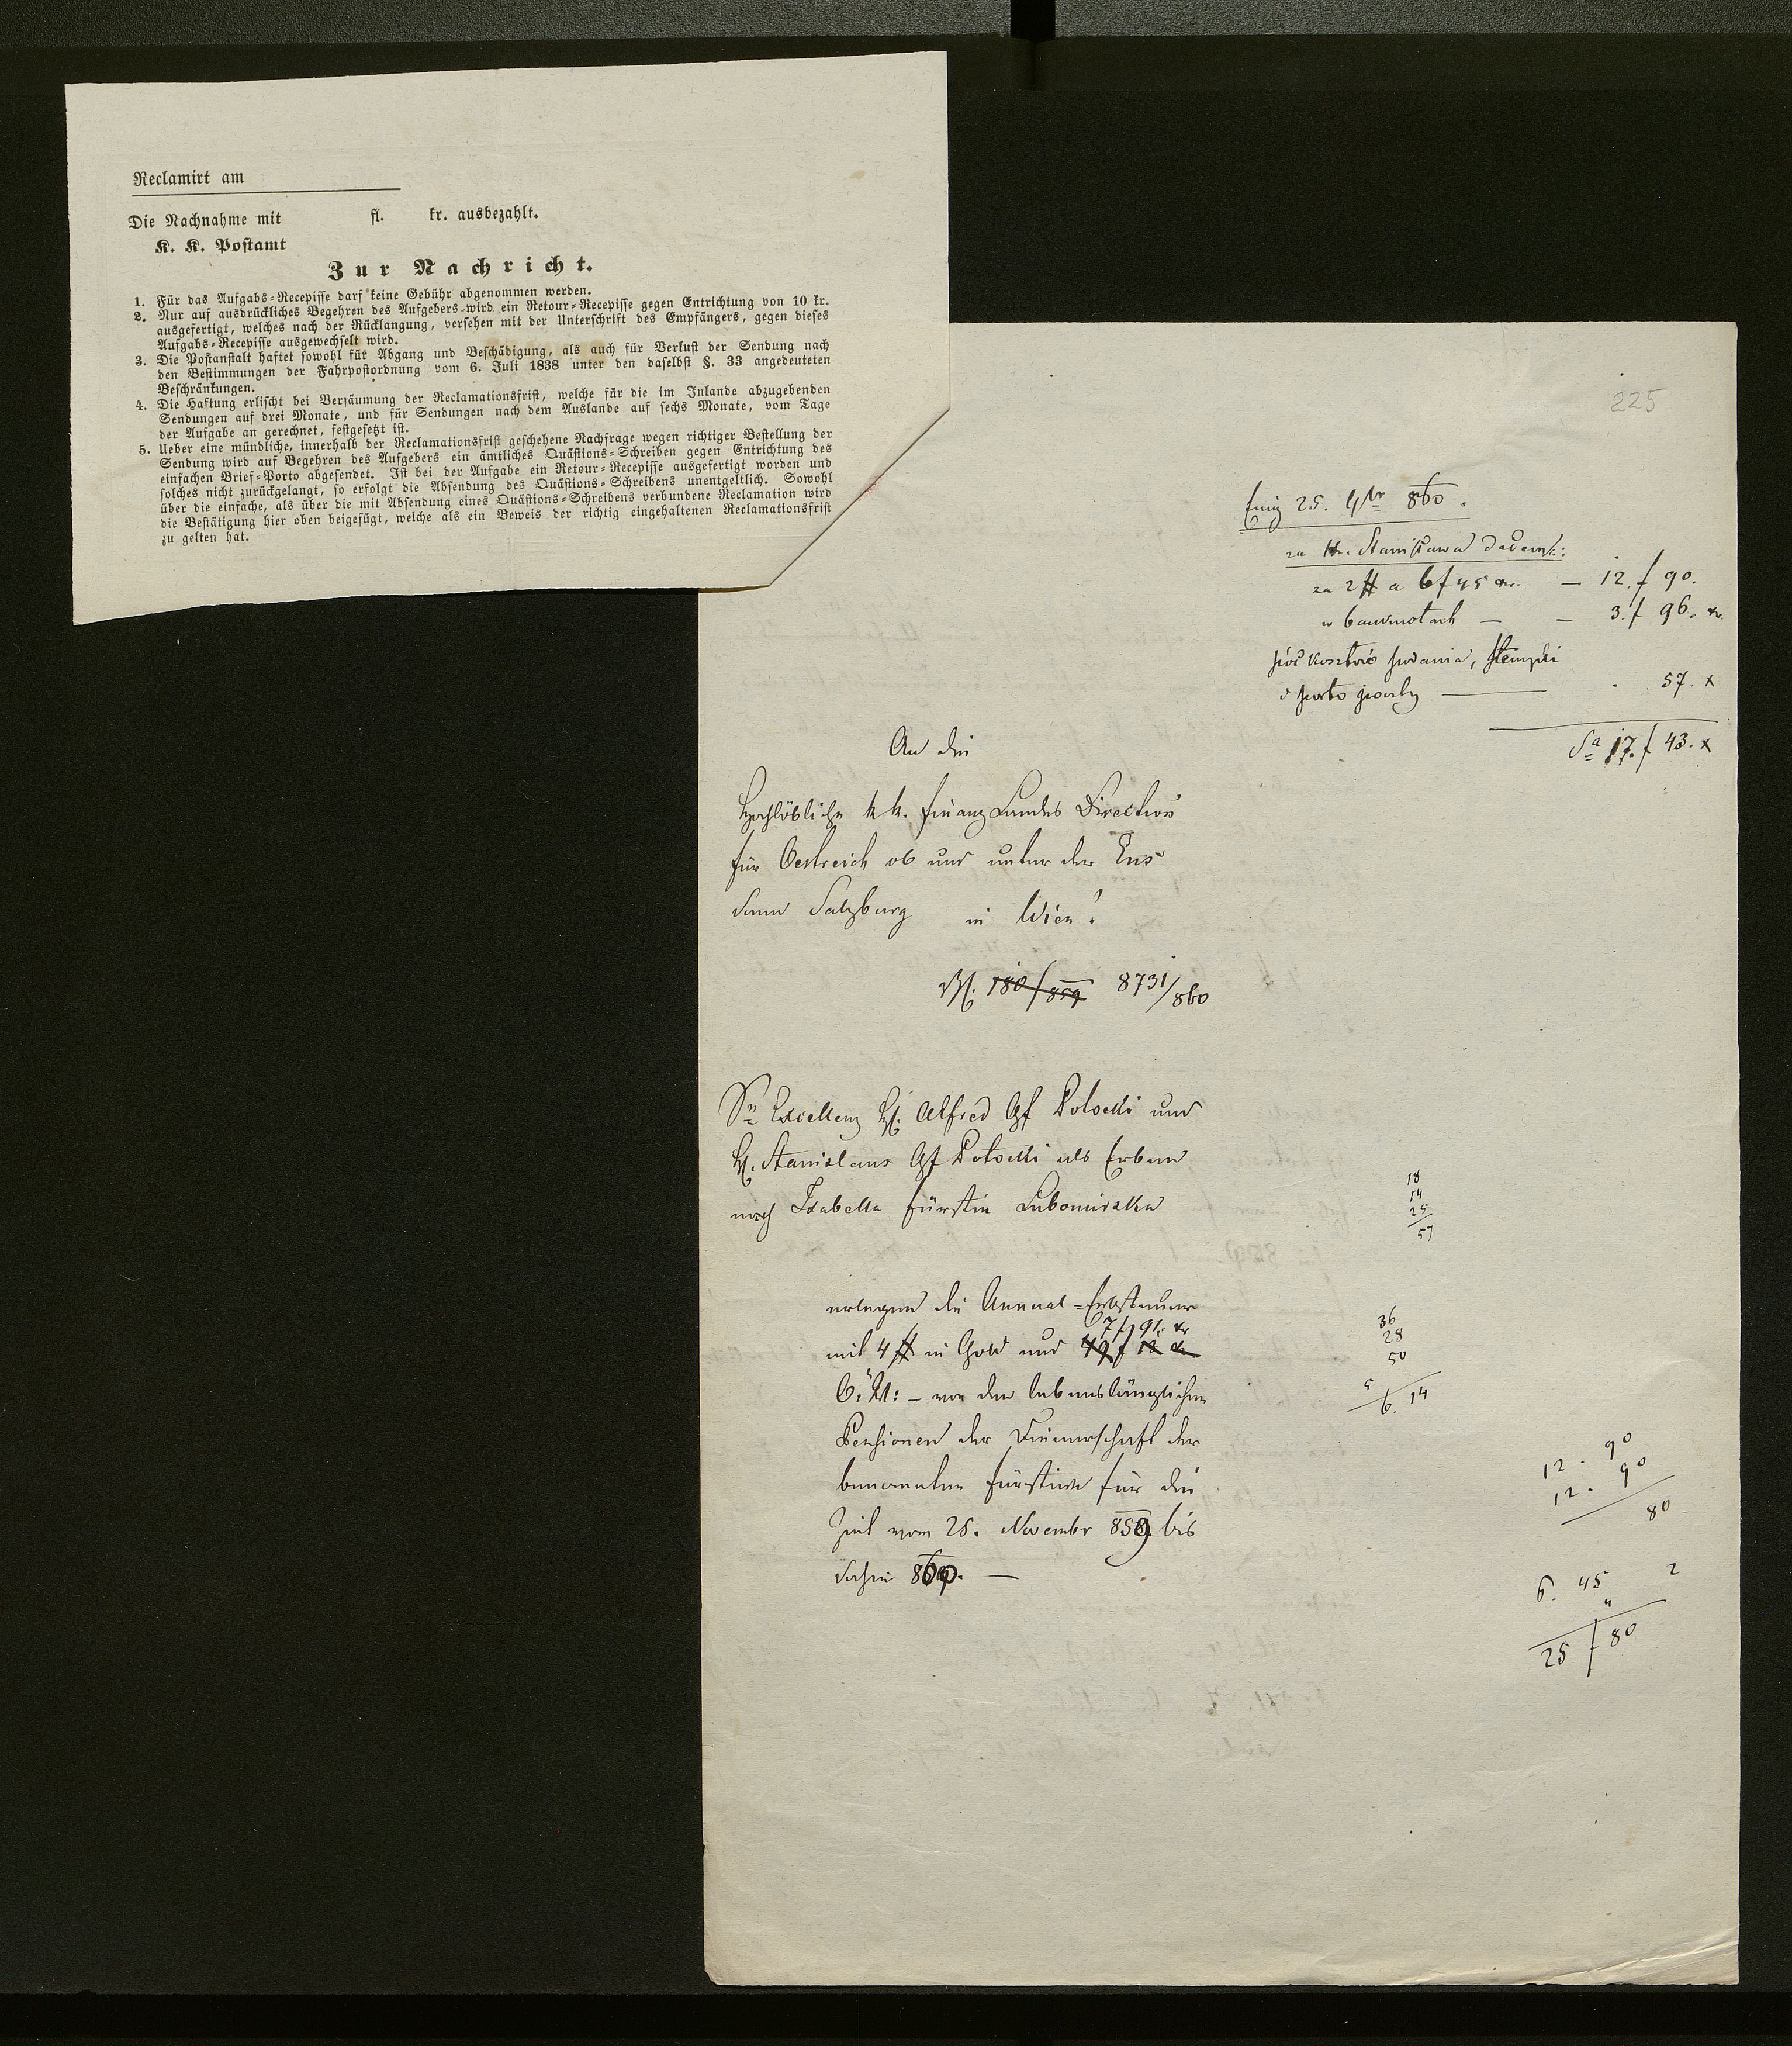 Reclamirt am
Die Nachnahme mit fl. kr. ausbezahlt.
K. K. Postamt
Zur Nachricht.
1. Für das Aufgabs-Recepisse darf keine Gebühr abgenommen werden.
2. Nur auf ausdrückliches Begehren des Aufgebers wird ein Retour-Recepisse gegen Entrichtung von 10 kr.
ausgefertigt, welches nach der Rücklangung, versehen mit der Unterschrift des Empfängers, gegen dieses
Aufgabs-Recepisse ausgewechselt wird.
3. Die Postanstalt haftet sowohl für Abgang und Beschädigung, als auch für Verlust der Sendung nach
den Bestimmungen der Fahrpostordnung vom 6. Juli 1838 unter den daselbst §. 33 angedeuteten
Beschränkungen.
4. Die Haftung erlischt bei Versäumung der Reclamationsfrist, welche für die im Inlande abzugebenden
Sendungen auf drei Monate, und für Sendungen nach dem Auslande auf sechs Monate, vom Tage
der Aufgabe an gerechnet, festgesetzt ist.
5. Ueber eine mündliche, innerhalb der Reclamationsfrist geschehene Nachfrage wegen richtiger Bestellung der
Sendung wird auf Begehren des Aufgebers ein ämtliches Quästions-Schreiben gegen Entrichtung des
einfachen Brief-Porto abgesendet. Ist bei der Aufgabe ein Retour-Recepisse ausgefertigt worden und
solches nicht zurückgelangt, so erfolgt die Absendung des Quästions-Schreibens unentgeltlich. Sowohl
über die einfache, als über die mit Absendung eines Quästions-Schreibens verbundene Reclamation wird
die Bestätigung hier oben beigefügt, welche als ein Beweis der richtig eingehaltenen Reclamationsfrist
zu gelten hat.
225
25. 9br 860.
za Hr. Stanisława
za 2 # a 6 f 45 kr. — 12. f 90.
w banknotach — — 3. f 96. kr.
pół kosztów podania, stempli
i porto poczty — 57. x
Sa 17. f 43. x
An die
Hochlöbliche k k. Finanz Landes Direction
für Oestreich ob und unter der Ens
dann Salzburg in Wien!
180/859 8731/860
Se Excellenz H. Alfred Gf Potocki und
H. Stanislaus Gf Potocki als Erben
nach Isabella Fürstin Lubomirska
18
14
25
57
erlegen die Annual-Erbsteuer
7 f 91. kr
mit 4 # in Gold und 49 f 13 kr
Ö. W: – von den lebenslänglichen
Pensionen der Dienerschaft der
benannten Fürstin für die
Zeit vom 25. November 859 bis
dahin 860. —
36
28
50
5
6. 14
12. 90
12. 90
80
6. 45 2
25 f 80